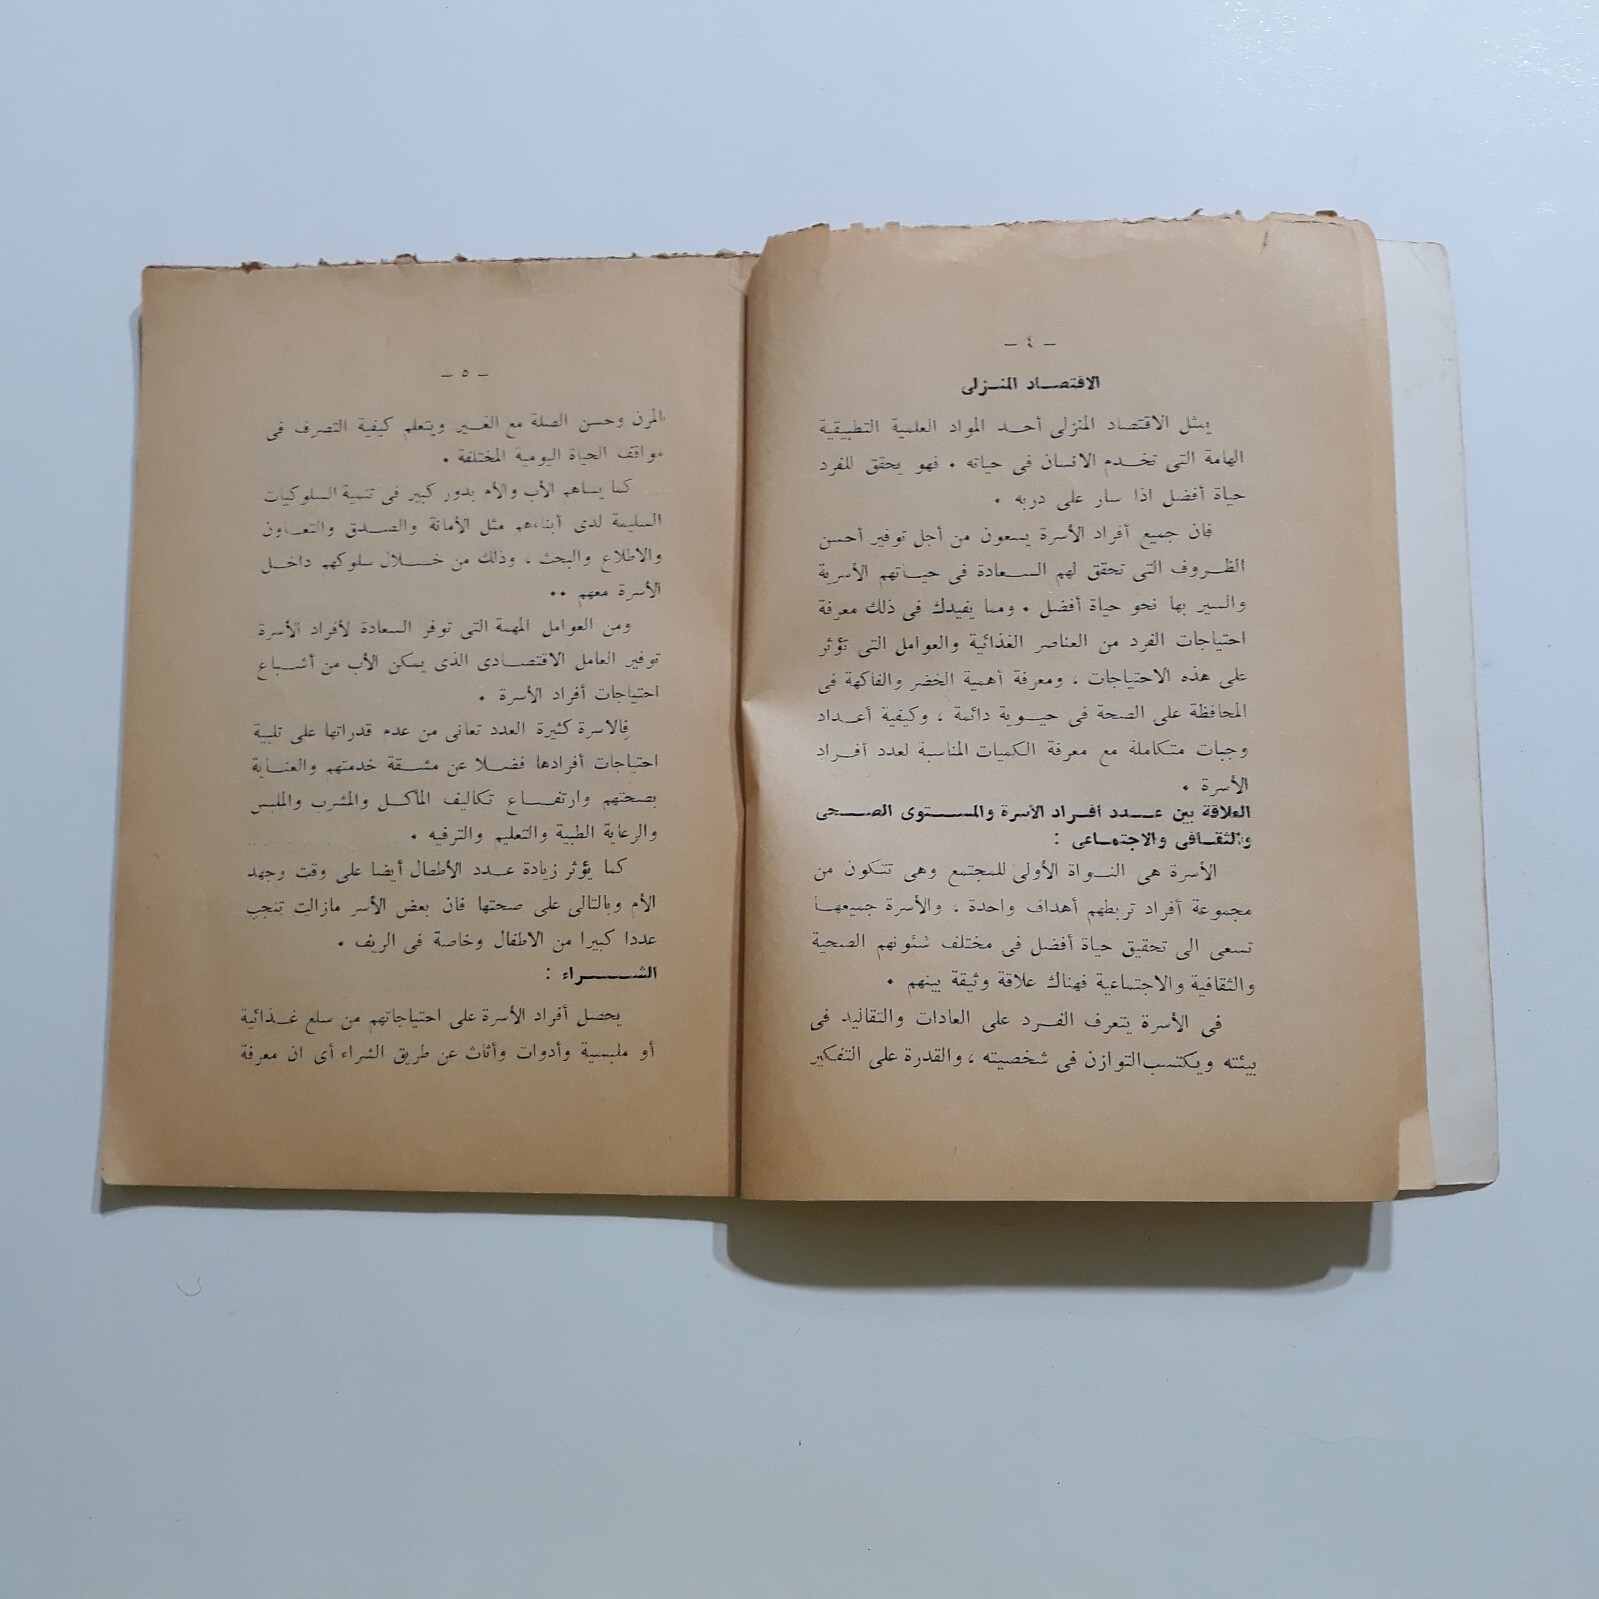 — ٤ —
الاقتصاد المنزلى
يمثل الاقتصاد المنزلى أحد المواد العلمية التطبيقية
الهامة التى تخدم الانسان فى حياته . فهو يحقق للفرد
حياة أفضل اذا سار على دربه .
فان جميع أفراد الأسرة يسعون من أجل توفير أحسن
الظروف التى تحقق لهم السعادة فى حياتهم الأسرية
والسير بها نحو حياة أفضل . ومما يفيدك فى ذلك معرفة
احتياجات الفرد من العناصر الغذائية والعوامل التى تؤثر
على هذه الاحتياجات ، ومعرفة أهمية الخضر والفاكهة فى
المحافظة على الصحة فى حيوية دائمة ، وكيفية أعداد
وجبات متكاملة مع معرفة الكميات المناسبة لعدد أفراد
الأسرة .
العلاقة بين عدد أفراد الأسرة والمستوى الصحى
والثقافى والاجتماعى :
الأسرة هى النواة الأولى للمجتمع وهى تتكون من
مجموعة أفراد تربطهم أهداف واحدة ، والأسرة جميعها
تسعى الى تحقيق حياة أفضل فى مختلف شئونهم الصحية
والثقافية والاجتماعية فهناك علاقة وثيقة بينهم .
فى الأسرة يتعرف الفرد على العادات والتقاليد فى
بيئته ويكتسب التوازن فى شخصيته ، والقدرة على التفكير
— ٥ —
المرن وحسن الصلة مع الغير ويتعلم كيفية التصرف فى
مواقف الحياة اليومية المختلفة .
كما يساهم الأب والأم بدور كبير فى تنمية السلوكيات
السليمة لدى أبناءهم مثل الأمانة والصدق والتعاون
والاطلاع والبحث ، وذلك من خلال سلوكهم داخل
الأسرة معهم ..
ومن العوامل المهمة التى توفر السعادة لأفراد الأسرة
توفير العامل الاقتصادى الذى يمكن الأب من أشباع
احتياجات أفراد الأسرة .
فالاسرة كثيرة العدد تعانى من عدم قدراتها على تلبية
احتياجات أفرادها فضلا عن مشقة خدمتهم والعناية
بصحتهم وارتفاع تكاليف المأكل والمشرب والملبس
والرعاية الطبية والتعليم والترفيه .
كما يؤثر زيادة عدد الأطفال أيضا على وقت وجهد
الأم وبالتالى على صحتها فان بعض الأسر مازالت تنجب
عددا كبيرا من الاطفال وخاصة فى الريف .
الشراء :
يحصل أفراد الأسرة على احتياجاتهم من سلع غذائية
أو ملبسية وأدوات وأثاث عن طريق الشراء أى ان معرفة